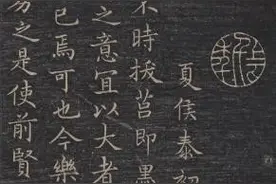 夏侯泰初
不時拔莒即
之意宜以大者
已焉可也今樂
之是使前賢